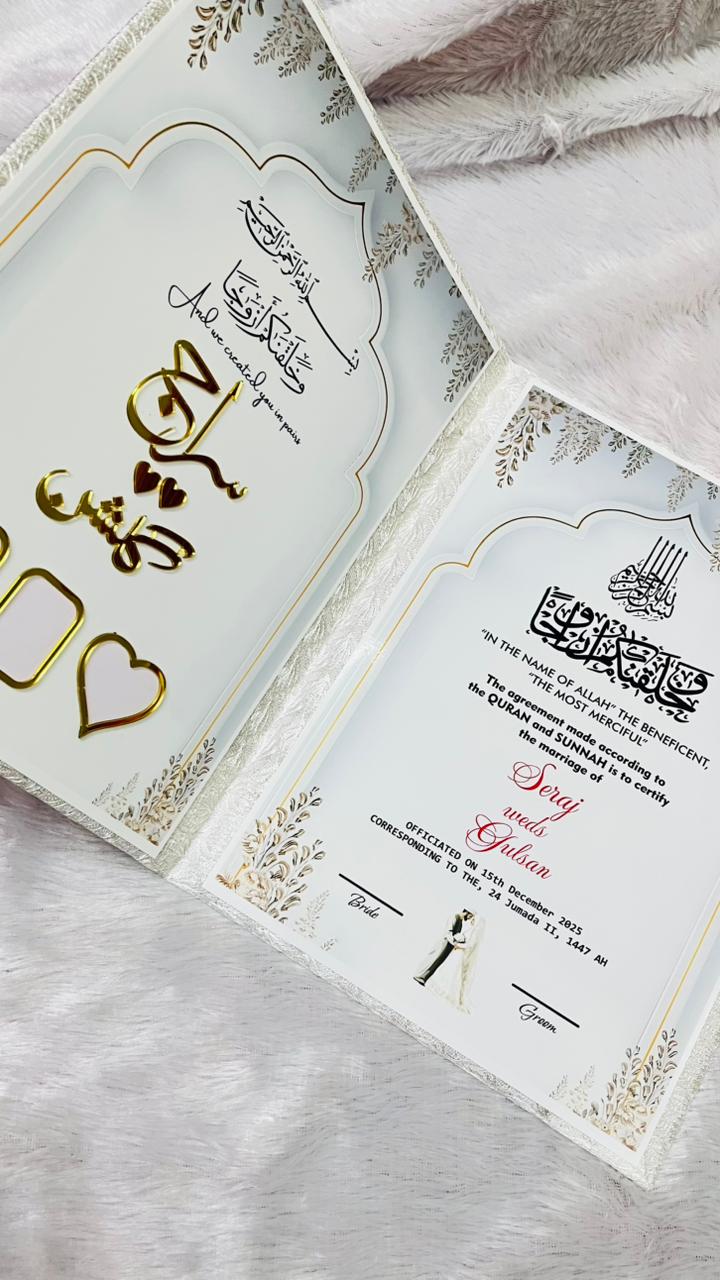 بسم الله الرحمن الرحيم
وَخَلَقْنَكُمْ أَزْوَجًا
And we created you in pairs
بسم الله الرحمن الرحيم
وَخَلَقْنَكُمْ أَزْوَجًا
“IN THE NAME OF ALLAH” THE BENEFICENT,
“THE MOST MERCIFUL”
The agreement made according to
the QURAN and SUNNAH is to certify
the marriage of
Seraj
weds
Gulsan
OFFICIATED ON 15th December 2025
CORRESPONDING TO THE, 24 Jumada II, 1447 AH
Bride
Groom